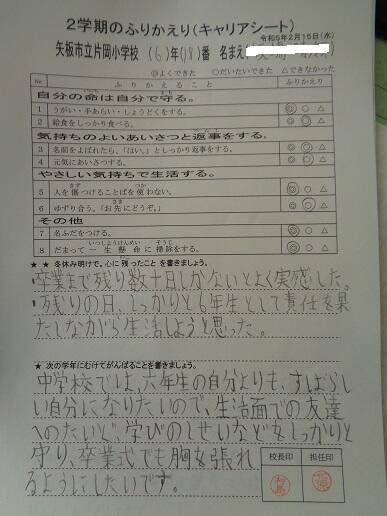 2学期のふりかえり(キャリアシート)
令和5年2月15日(水)
矢板市立片岡小学校 (6)年(18)番 名まえ
◎よくできた ○だいたいできた △できなかった
No ふりかえること ふりかえり
自分の命は自分で守る。
1 うがい・手あらい・しょうどくをする。 ◎ ○ △
2 給食をしっかり食べる。 ◎ ○ △
気持ちのよいあいさつと返事をする。
3 名前をよばれたら、「はい。」としっかり返事をする。 ◎ ○ △
4 元気にあいさつする。 ◎ ○ △
やさしい気持ちで生活する。
5 人を傷つけることばを使わない。 ◎ ○ △
6 ゆずり合う。「お先にどうぞ。」 ◎ ○ △
その他
7 名ふだをつける。 ◎ ○ △
8 だまって一生懸命に掃除をする。 ◎ ○ △
★ ★ 冬休み明けで、心に残ったこと を書きましょう。
・卒業まで残り数十日しかないとよく実感した。
・残りの日、しっかりと6年生として責任を果
たしながら生活しようと思った。
★ 次の学年にむけてがんばることを書きましょう。
中学校では、六年生の自分よりも、すばらし
い自分になりたいので、生活面での友達
へのたいど、学びのしせいなどをしっかりと
守り、卒業式でも胸を張れ
るようにしたいです。
校長印 担任印